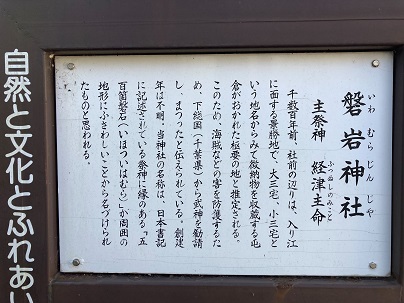 いわ むら じん じや
磐岩神社
主祭神 経津主命
ふつぬしのみこと
千数百年前、社前の辺りは、入り江
に面する景勝地で、大三宅、小三宅と
いう地名からみて徴納物を収蔵する屯
倉がおかれた枢要の地と推定される。
このため、海賊などの害を防護するた
め、下総国(千葉県)から武神を勧請
し、まつったと伝えられている。創建
年は不明。当神社の名称は、日本書記
に記述されている祭神に縁のある「五
百箇磐石(いほついはむら)」が周囲の
地形にふさわしいことから名づけられ
たものと思われる。
自然と文化とふれあい